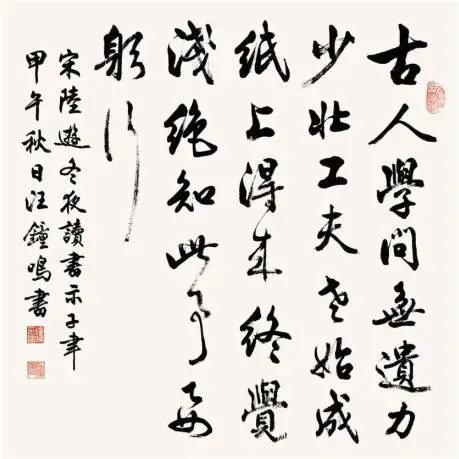 古人學問無遺力
少壯工夫老始成
紙上得來終覺
淺絕知此事要
躬行
宋陸遊冬夜讀書示子聿
甲午秋日汪鐘鳴書